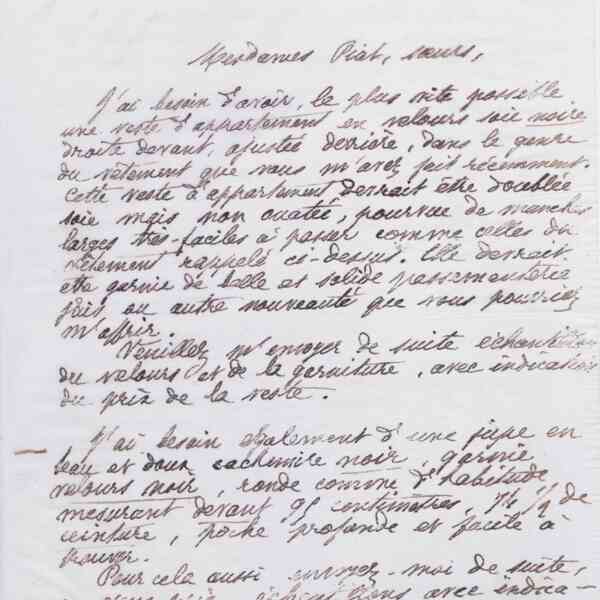 Mesdames Piat, sœurs,
J'ai besoin d'avoir, le plus vite possible
une veste d'appartement en velours soie noire
droite devant, ajustée derrière, dans le genre
du vêtement que vous m'avez fait récemment.
Cette veste d'appartement devrait être doublée
soie mais non ouatée, pourvue de manches
larges très-faciles à passer comme celles du
vêtement rappelé ci-dessus. Elle devrait
être garnie de belle et solide passementerie
jais ou autre nouveauté que vous pourriez
m'offrir.
Veuillez m'envoyer de suite échantillon
du velours et de la garniture, avec indication
du prix de la veste.
J'ai besoin également d'une jupe en
beau et doux cachemire noir, garnie
velours noir, ronde comme d'habitude
mesurant devant 95 centimètres, 74 1/2 de
ceinture, poche profonde et facile à
trouver.
Pour cela aussi envoyez-moi de suite,
avec indica-